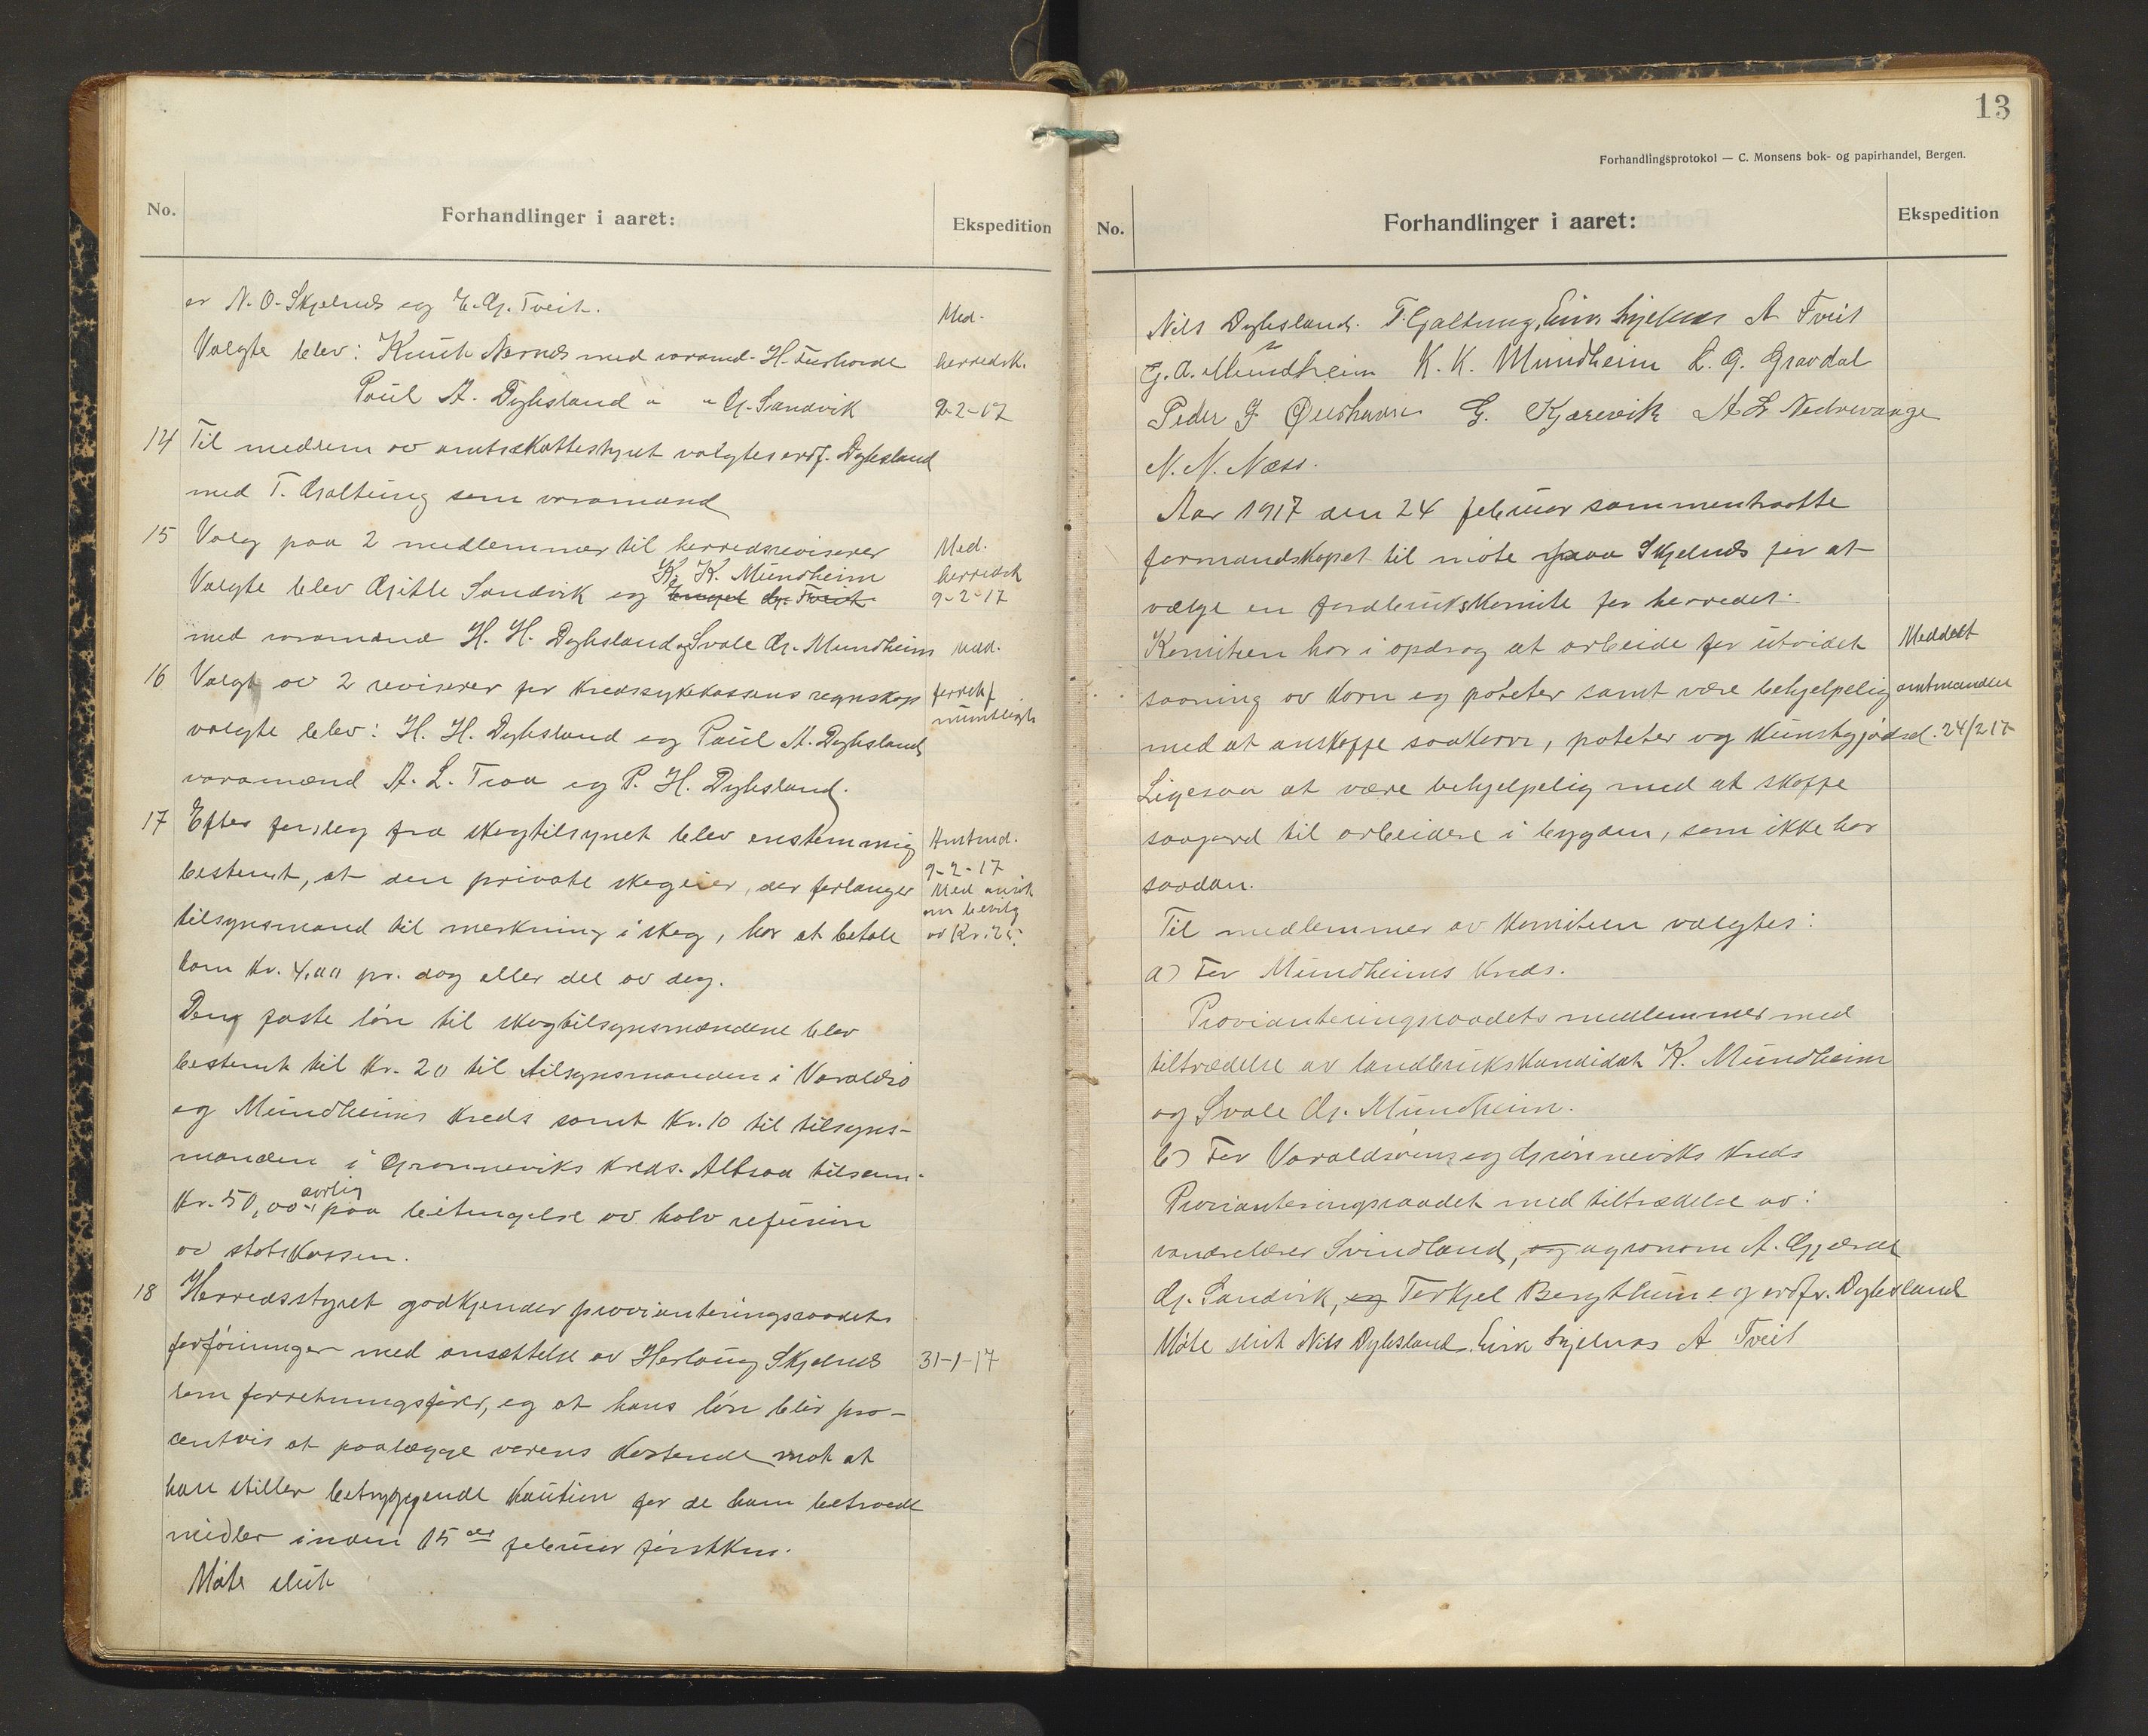 No.
Forhandlinger i aaret:
Ekspedition
er N. O. Skjelnes og E. G. Tveit.
Valgte blev: Knut Nernes med varamd. H. Teigland
Med.
herredsk.
9-2-17
Poul A. Dyhesland " " G. Sandvik
14 Til medlem av amtsskattestyret valgtes ordf. Dyhesland
med T. Galtung som varamand
15 Valg paa 2 medlemmer til herredsreviserer
Med.
herredsk
9-2-17
K. K. Mundheim
Valgte blev Gitle Sandvik og Engel G. Tveit
med varamænd H. H. Dyhesland og Svale G. Mundheim
Med.
16 Valgt av 2 reviserer for kredssykekassens regnskap
forretf
muntligt
valgte blev: H. H. Dyhesland og Poul A. Dyhesland
varamænd A. L. Traa og P. H. Dyhesland.
17 Efter forslag fra skogtilsynet blev enstemmig
Amtmd.
9-2-17
Med ansøk
om bevilg
av Kr. 25.
bestemt, at den private skogeier, der forlanger
tilsynsmand til merkning i skog, har at betale
ham Kr. 4,00 pr. dag eller del av dag.
Den faste løn til skogtilsynsmændene blev
bestemt til Kr. 20 til tilsynsmanden i Varaldsø
og Mundheims Kreds samt Kr. 10 til tilsyns-
manden i Grønneviks Kreds. Altsaa tilsam.
Kr. 50,00 aarlig paa betingelse av halv refusion
av statskassen.
18 Herredsstyret godkjender provianteringsraadets
forføininger med ansættelse av Herlaug Skjelnes
31-1-17
som forretningsfører, og at hans løn blir pro-
centvis at paalægge varens kostende mot at
han stiller betryggende kaution for de ham betroede
midler inden 15de februar førstkm.
Møte slut
13
Forhandlingsprotokol — C. Monsens bok- og papirhandel, Bergen.
No.
Forhandlinger i aaret:
Ekspedition
Nils Dyhesland. T. Galtung, Eirik Skjelnes A Tveit
G. A. Mundheim K. K. Mundheim L. G. Gravdal
Peder J Øierhavn G. Kjærevik A L Nedrevaage
N. N. Næss.
Aar 1917 den 24 februar sammentraatte
formandskapet til møte paa Skjelnes for at
vælge en jordbrukskomite for herredet.
Komiteen har i opdrag at arbeide for utvidet
Meddelt
amtmanden
24/2 17
saaning av korn og poteter samt være behjelpelig
med at anskaffe saakorn, poteter og kunstgjødsel.
Ligesaa at være behjelpelig med at skaffe
saajord til arbeidere i bygden, som ikke har
saadan.
Til medlemmer av komiteen valgtes:
a) For Mundheims Kreds.
Provianteringsraadets medlemmer med
tiltrædelse av landbrukskandidat K. Mundheim
og Svale G. Mundheim.
b) For Varaldsøens og Grønneviks Kreds
Provianteringsraadet med tiltrædelse av:
vandrelærer Svindland, og agronom A. Gjerde
G. Sandvik, og Torkjel Bergthun og ordfr. Dyhesland
Møte slut Nils Dyhesland. Eirik Skjelnes A Tveit